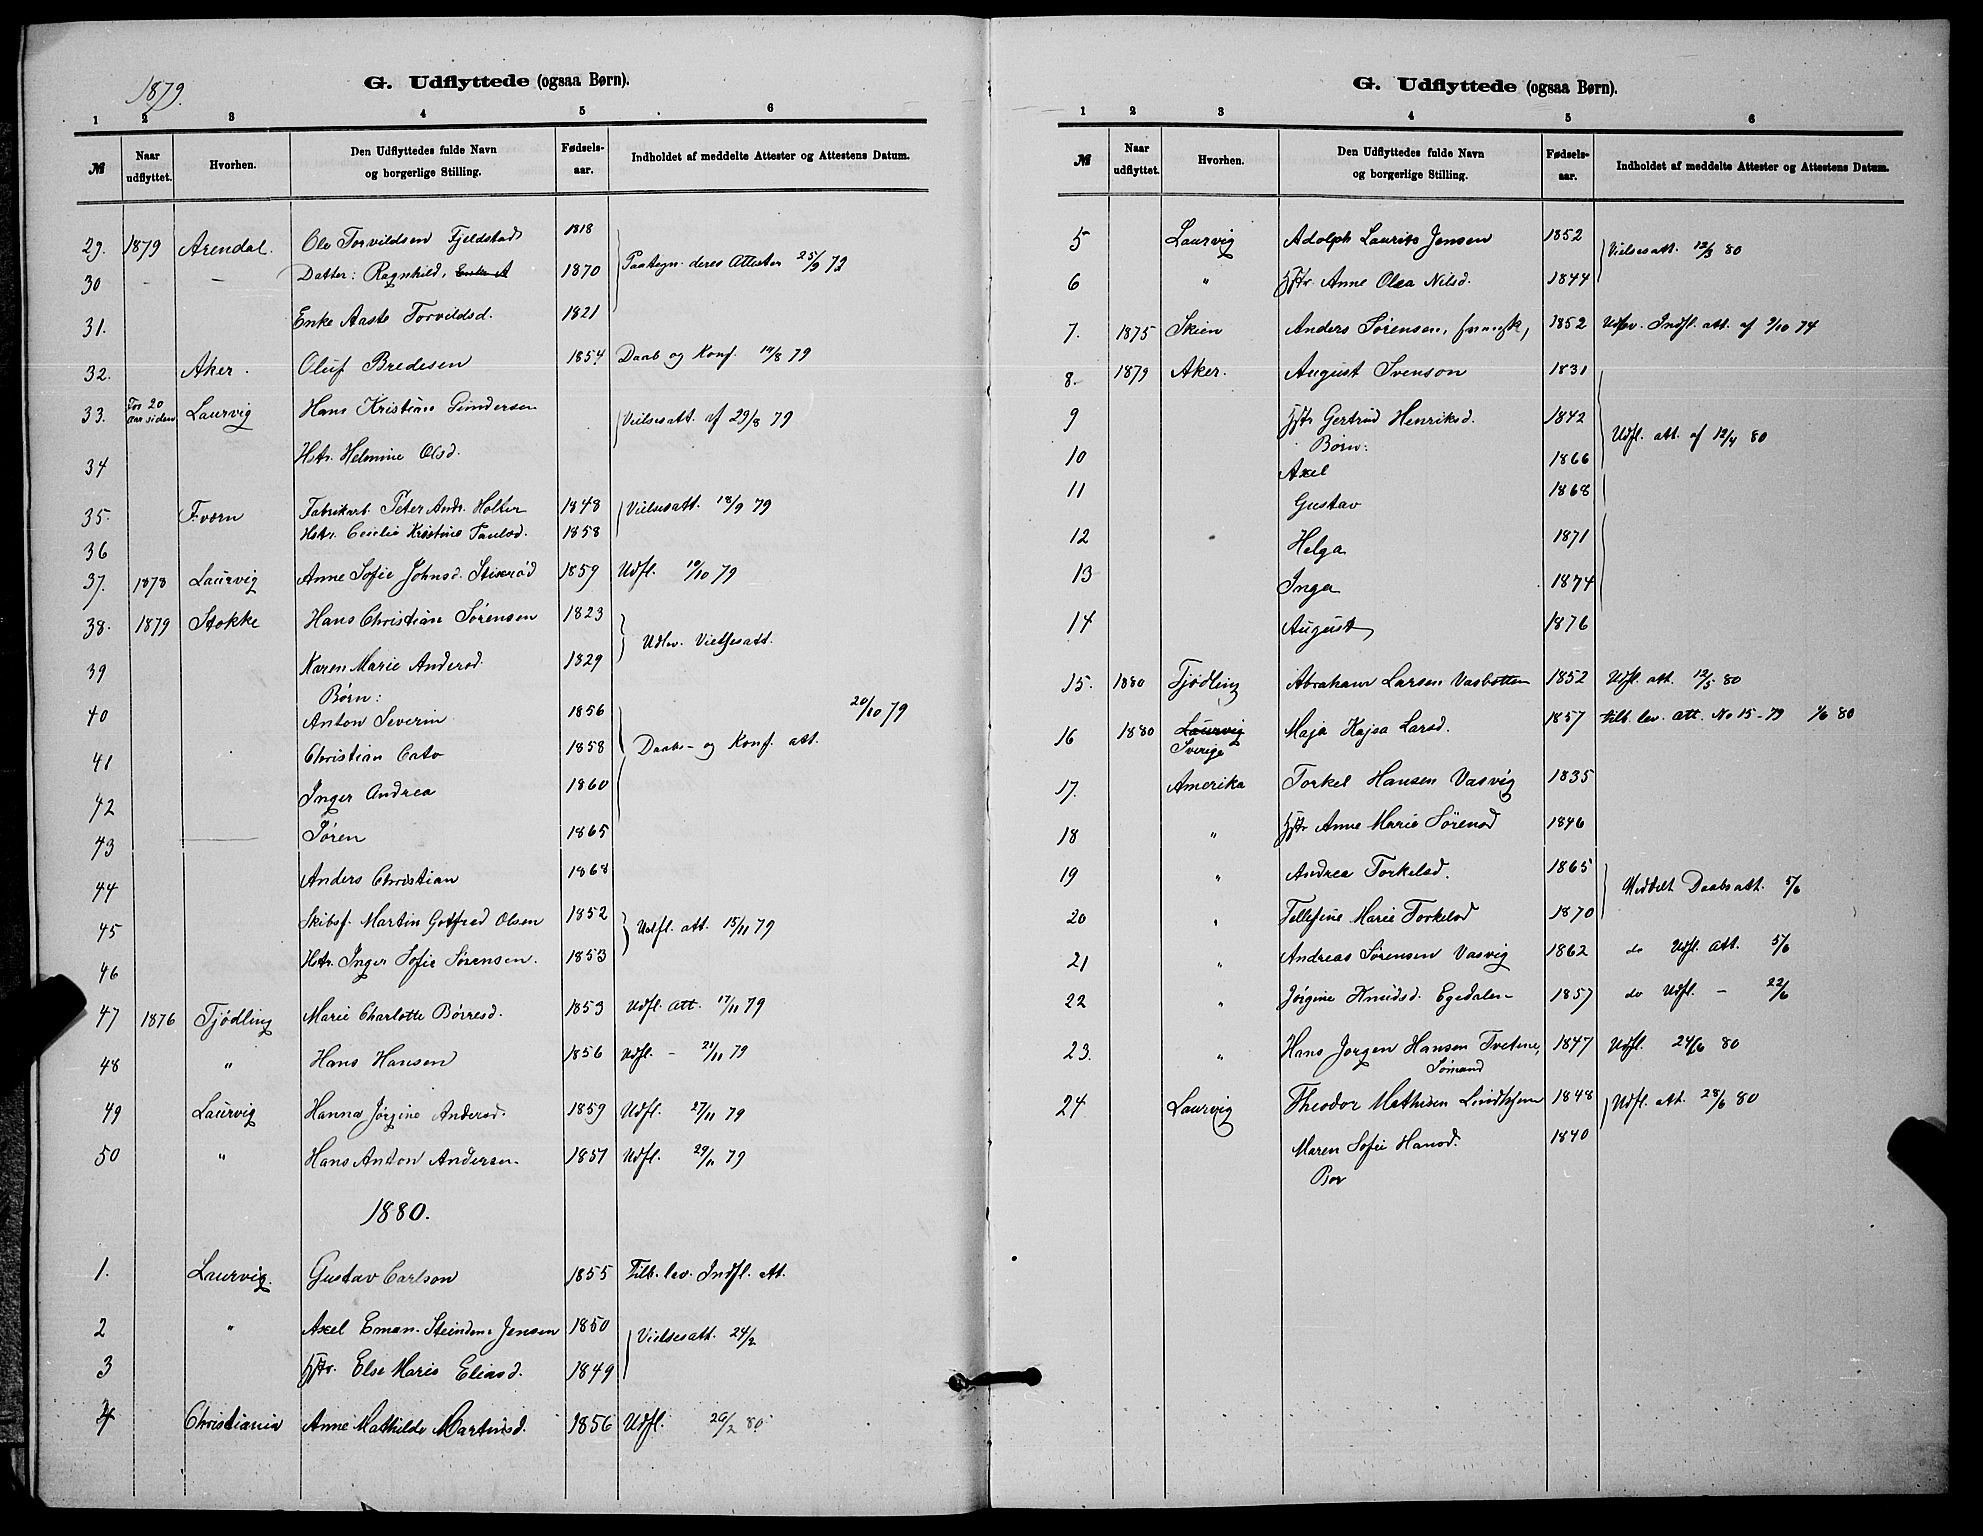 1879.
G. Udflyttede (ogsaa Børn).
1 2 3 4 5 6
№ Naar udflyttet. Hvorhen. Den Udflyttedes fulde Navn og borgerlige Stilling. Fødsels-aar. Indholdet af meddelte Attester og Attestens Datum.
29. 1879 Arendal. Ole Torvildsen Fjeldstad 1818
30 - - Datter: Ragnhild, 1870 Paategn. deres Attester 25/9 79
31. Enke Aaste Torvildsd. 1821
32. Aker. Oluf Bredesen 1854 Daab og Konf. 19/8 79
33. For 20 Aar siden Laurvig Hans Kristian Gundersen Vielsesatt. af 29/8 79
34 Hstr. Helmine Olsd.
35. Fværn Fabrikarb. Peter Andr. Holter 1848 Vielsesatt. 18/9 79
36 Hstr. Cecilie Kristine Paulsd. 1858
37. 1878 Laurvig Anne Sofie Johnsd. Stixrød 1859 Udfl. 10/10 79
38. 1879 Stokke Hans Christian Sørensen 1823
39 Karen Marie Andersd. 1829 Udlev. Vielsesatt.
Børn:
40 Anton Severin 1856 20/10 79
41 Christian Cato 1858 Daabs- og Konf. att.
42 Inger Andrea 1860
43 Søren 1865
44 Anders Christian 1868
45 Skibsf. Martin Gotfred Olsen 1852 Udfl. att. 15/11 79
46 Hstr. Inger Sofie Sørensen. 1853
47 1876 Tjødling Marie Charlotte Børresd. 1853 Udfl. att. 17/11 79
48 " Hans Hansen 1856 Udfl. - 21/11 79
49 Laurvig Hanna Jørgine Andersd. 1859 Udfl. 27/11 79
50 " Hans Anton Andersen 1851 Udfl. 29/11 79
1880.
1. Laurvig. Gustav Carlson 1855 Tilb. lev. Indfl. Att.
2 " Axel Eman. Steindene Jensen 1850 Vielsesatt. 24/2
3 Hstr. Else Marie Eliasd. 1849
4 Christiania Anne Mathilde Martinsd. 1856 Udfl. 26/2 80
G. Udflyttede (ogsaa Børn).
1 2 3 4 5 6
№ Naar udflyttet. Hvorhen. Den Udflyttedes fulde Navn og borgerlige Stilling. Fødsels-aar. Indholdet af meddelte Attester og Attestens Datum.
5 Laurvig Adolph Laurits Jensen 1852 Vielsesatt. 12/3 80
6 " Hstr. Anne Olea Nilsd. 1844
7. 1875 Skien Anders Sørensen, 1852 Udlev. Indfl. att. af 9/10 74
8. 1879 Aker. August Svenson 1831
9 Hstr Gertrud Henriksd. 1842 Udfl. att. af 12/4 80
Børn:
10 Axel 1866
11 Gustav 1868
12 Helga 1871
13 Inga 1874
14 August 1876
15. 1880 Tjødling Abraham Larsen Vasbotten 1852 Udfl. att. 12/5 80
16 1880 Laurvig Sverige Maja Kajsa Larsd. 1857 tilb. lev. att. No 15-79 1/6 80
17. Amerika Torkel Hansen Vasvig 1835
18 " Hstr Anne Marie Sørensd 1846
19 " Andrea Torkelsd. 1865 Meddelt Daabsatt. 5/6
20 " Tellefine Marie Torkelsd 1870
21 " Andreas Sørensen Vasvig 1862 do Udfl. Att. 5/6
22 " Jørgine Knudsd. Egedalen 1857 do Udfl. - 22/6
23. " Hans Jørgen Hansen Tvetene, Sømand 1847 Udfl. 24/6 80
24. Laurvig Theodor Mathisen Lindhjem 1848 Udfl. att. 28/6 80
Maren Sofie Hansd. 1840
Bør